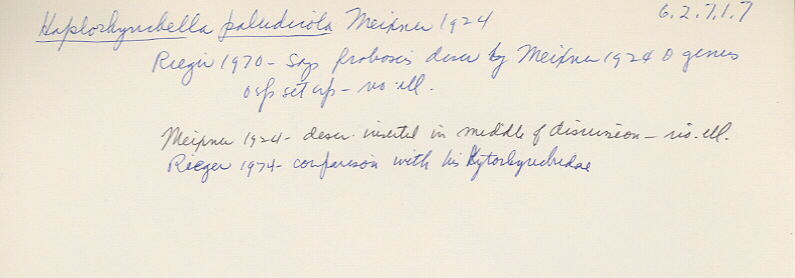 Haplorhynchella paludicola Meixner 1924 6.2.7.1.7
Rieger 1970 - Says proboscis descr by Meixner 1924 O genus
O sp set up - no ill.
Meixner 1924 - descr. inserted in middle of discussion - no. ill.
Rieger 1974 - comparison with his Cytorhynchidae